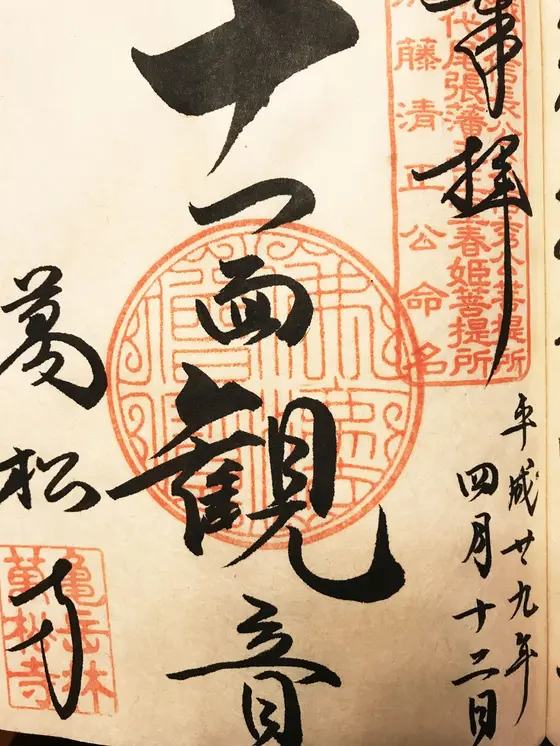 奉拝
平成廿九年
四月十二日
春姫菩提所
藤清正公命名
十一面観音
萬松寺
亀岳林
萬松寺